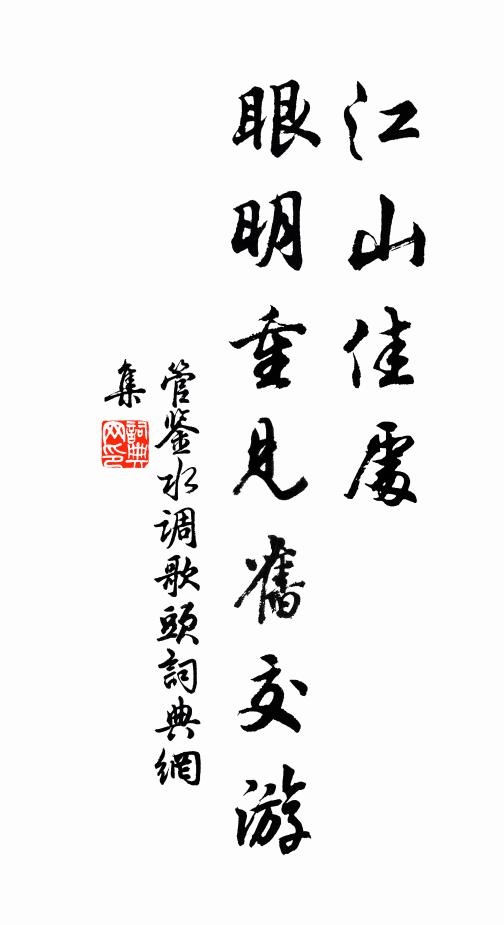 江山佳處
眼明重見舊交游
管鉴水调歌頭詞典網
集
詞典网印